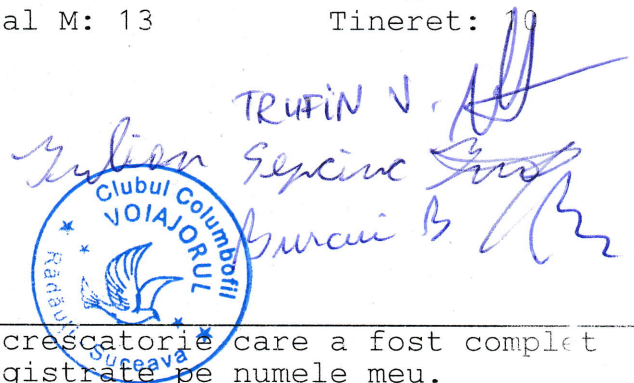 al M: 13 Tineret: 10
TRUFIN V.
Iulian
B.
Clubul Columbofil
VOIAJORUL
Rădăuți Suceava
crescatorie care a fost complet
gistrate pe numele meu.